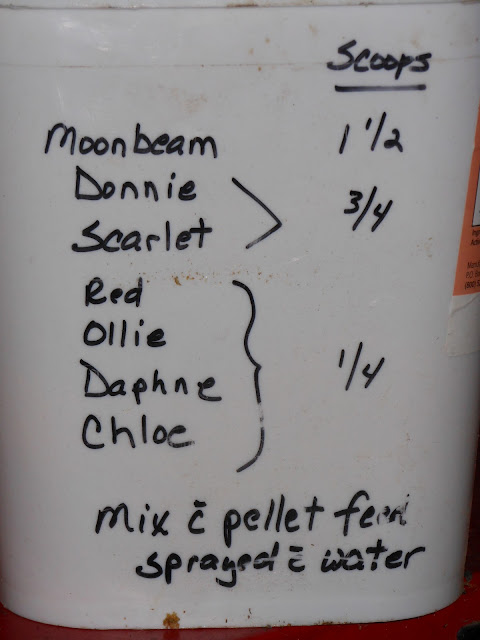 Scoops
Moonbeam 1 1/2
Donnie
Scarlet 3/4
Red
Ollie
Daphne 1/4
Chloe
mix c̄ pellet feed
sprayed c̄ water